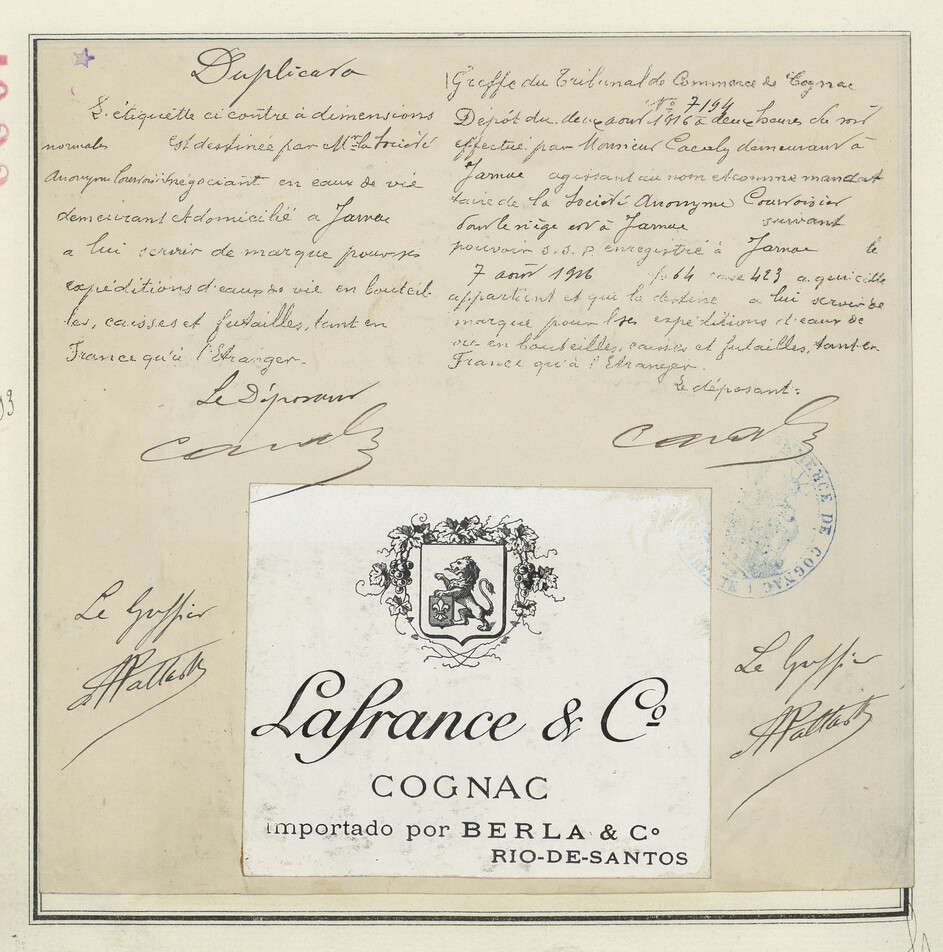 Duplicata
L'étiquette ci contre à dimensions
normales est destinée par Mr la Société
Anonyme Courvoisier négociant en eaux de vie
demeurant et domicilié a Jarnac
a lui servir de marque pour ses
expéditions d'eaux de vie en bouteil-
les, caisses et futailles, tant en
France qu'à l'Etranger.
Le Déposant
Greffe du Tribunal de Commerce de Cognac
No 7194
Dépôt du deux août 1916 à deux heures du soir
effectué par Monsieur demeurant à
Jarnac agissant au nom et comme mandat
taire de la Société Anonyme Courvoisier
dont le siège est à Jarnac suivant
pouvoir s.s.p. enregistré à Jarnac le
7 août 1916 fo 64 case 423 a qui elle
appartient et qui la destine a lui servir de
marque pour ses expéditions d'eaux de
vie en bouteilles, caisses et futailles, tant en
France qu'à l'Etranger.
Le déposant:
COMMERCE DE COGNAC
Le Greffier
Le Greffier
Lafrance & Co
COGNAC
Importado por BERLA & Co
RIO-DE-SANTOS